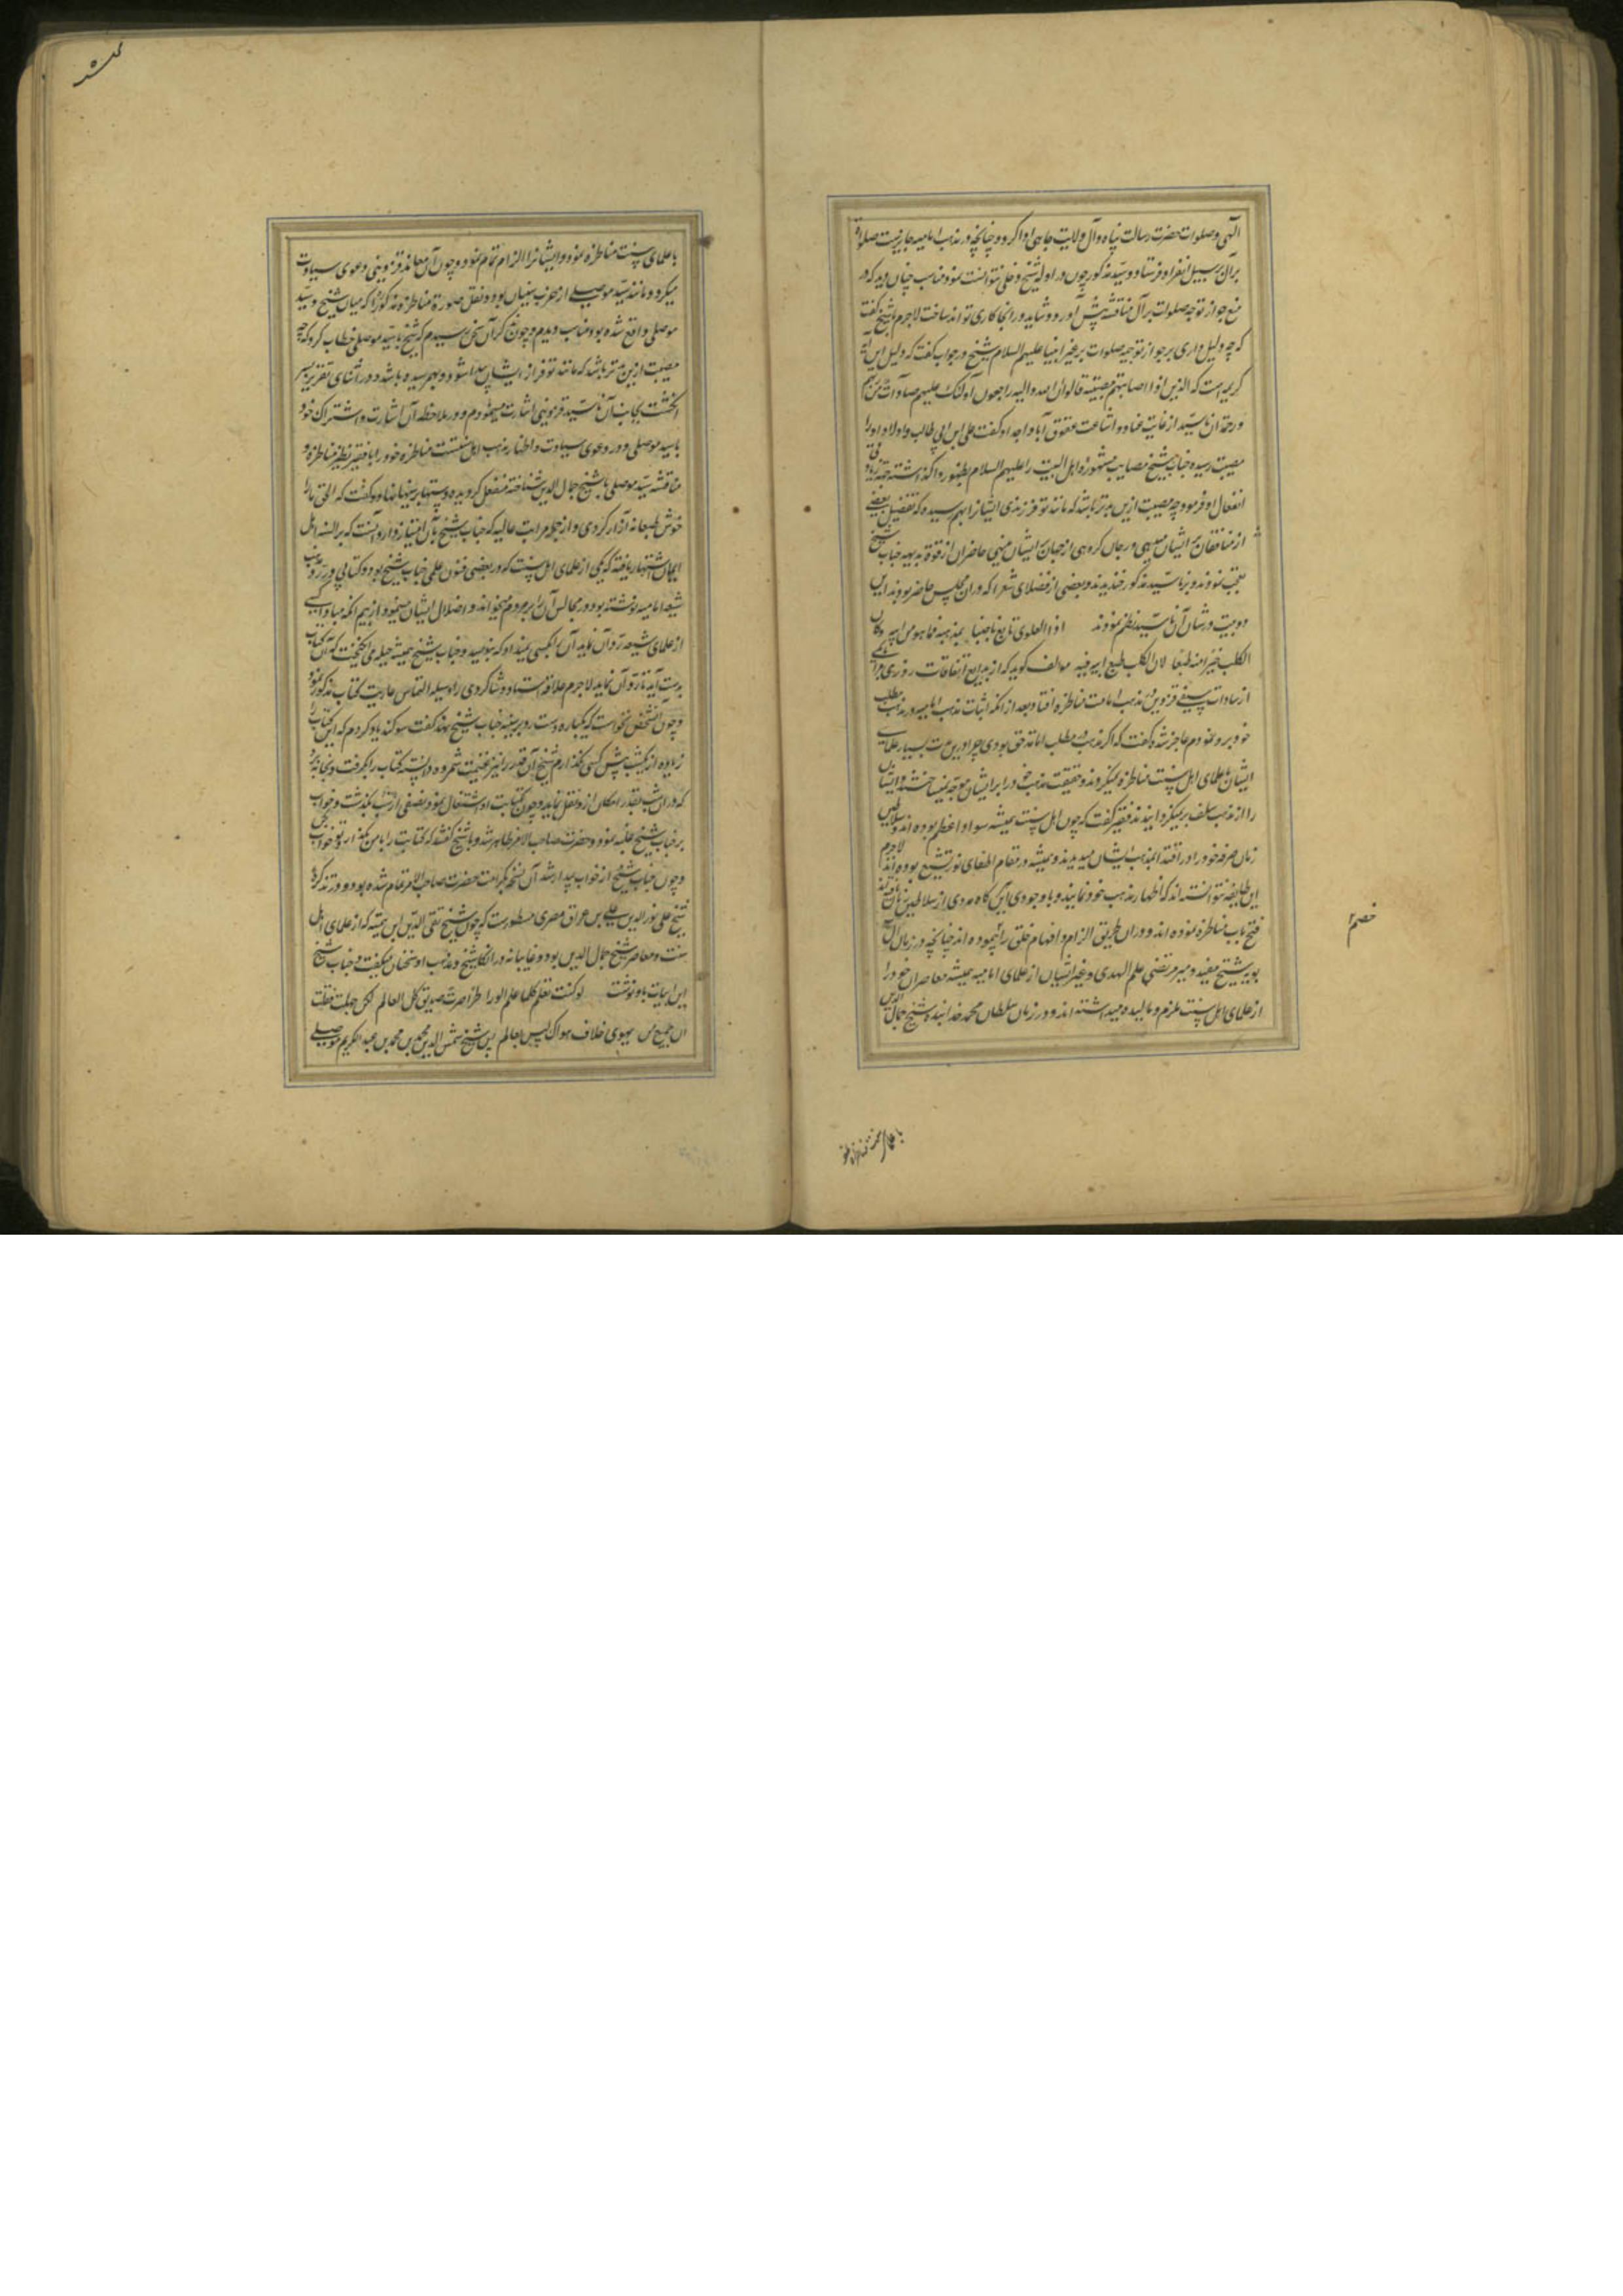 الهی و صلوات حضرت رسالت پناه و آل ولایت جاهی ادا کرد و چنانچه در مذهب امامیه جایز است صلوات
بر آل بر سبیل انفراد فرستاد و سید مذکور چون در ادله شیخ دخلی نتوانست نمود مناسب چنان دید که در
منع جواز توجه صلوات بر آل مناقشه پیش آورد و شاید در انجا کاری تواند ساخت لاجرم با شیخ گفت
که چه دلیل داری بر جواز توجیه صلوات بر غیر انبیا علیهم السلام شیخ در جواب گفت که دلیل این آیه
کریمه است که الذین اذا اصابتهم مصیبة قالوا انا لله و الیه راجعون اولئک علیهم صلوات من ربهم
و رحمة ان ناسید از غایت عناد و اشاعت عقوق آبا و اجداد گفت علی ابن ابی طالب و اولاد او را
مصیبت رسیده جناب شیخ مصایب مشهوره اهل البیت را علیهم السلام بظهور واگذاشته جهة زیادتی
انفعال او فرمود چه مصیبت ازین بدتر باشد که مانند تو فرزندی ایشانرا بهم رسیده که تفضیل بعضی
از منافقان بر ایشان میدهی و رجحان گروهی از جهان بر ایشان مینهی حاضران از قوة بدیهه جناب شیخ
تعجب نمودند و بر ناسید مذکور خندیدند و بعضی از فضلای شعرا که در ان مجلس حاضر بودند این
دو بیت در شان آن ناسید نظم نمودند اذا العلوی تابع ناصبیا بمذهبه فما هو من ابیه و کان
الکلب خیرا منه طبعا لان الکلب طبع ابیه فیه مولف گوید که از بدایع اتفاقات روزی مرا با یکی
از سادات سیفی قزوین در مذهب امامت مناظره افتاد بعد از انکه اثبات مذهب امامیه در مطلب
خود بر و نمودم عاجز شد و گفت که اگر مذهب شما در مطلب امامت حق بودی چرا در این مدت بسیار علمای
ایشان با علمای اهل سنت مناظره نمیکردند و حقیقت مذهب خود را بر ایشان موجه نمیساختند و ایشان
را از مذهب سلف بر نمیگردانیدند فقیر گفت که چون اهل سنت همیشه سواد اعظم بوده اند و سلاطین
زمان صرفه خود را در اقتدا بمذهب ایشان میدیدند و همیشه در مقام اطفای نور تشیع بوده اند لاجرم
این طایفه نتوانسته اند که اظهار مذهب خود نمایند و با وجود این گاه مددی از سلاطین زمان یافته اند
فتح باب مناظره نموده اند و در ان طریق الزام و افحام خلق را پیموده اند چنانچه در زمان آل
بویه شیخ مفید و میر مرتضی علم الهدی و غیر ایشان از علمای امامیه همیشه معاصران خود را
از علمای اهل سنت ملزم و مالیده میداشته اند و در زمان سلطان محمد خدابنده شیخ جمال الدین
خصم
با علمای سنت مناظره نمود
با علمای سنت مناظره نمود و ایشانرا الزام تمام نمود و چون آن معاند قزوینی دعوی سیادت
میکرد و مانند سید موصلی از حزب سنیان بود و نقل صورة مناظره مذکور را که میان شیخ و سید
موصلی واقع شده بود مناسب دیدم و چون ذکر آن سخن رسیدم که شیخ با سید موصلی خطاب کرد که چه
مصیبت ازین بدتر باشد که مانند تو فرزندی از ایشان پیدا شود و بهم رسیده باشد و در اثنای تقریر بسر
انگشت بجانب آن ناسید قزوینی اشارت مینمودم و در ملاحظه آن اشارت و اشتراک خود
با سید موصلی در دعوی سیادت و اظهار مذهب اهل سنت مناظره خود را با فقیر نظیر مناظره و
مناقشه سید موصلی با شیخ جمال الدین شناخته منفعل گردیده دستها بر سینه نهاد و گفت که الحق ما را
خوش طبعانه آزار کردی و از جمله مراتب عالیه که جناب شیخ بآن امتیاز دارد آنست که بر السنه اهل
ایمان اشتهار یافته که یکی از علمای اهل سنت که در بعضی فنون علمی جناب شیخ بود و کتابی در رد مذهب
شیعه امامیه نوشته بود در مجالس آن را بر مردم میخواند و اضلال ایشان مینمود و از بیم آنکه مبادا کسی
از علمای شیعه رد آن نماید آن را بکسی نمیداد که بنویسد و جناب شیخ همیشه حیله می انگیخت که آن کتاب
بدست آید تا رد آن نماید لاجرم علاقه استاد و شاگردی را وسیله التماس عاریت کتاب مذکور نمود
و چون آن شخص نخواست که یکباره دست رد بر سینه جناب شیخ نهد گفت سوگند یاد کردم که این کتاب را
زیاده از یکشب پیش کسی نگذارم شیخ آن قدر را نیز غنیمت شمرده دانسته کتاب را بگرفت و بخانه برد
که در ان شب بقدر امکان از و نقل نماید و چون بکتابت او اشتغال نمود و نصفی از شب بگذشت و خواب
بر جناب شیخ غلبه نمود و حضرت صاحب الامر ظاهر شد و با شیخ گفتند که کتابت را با من گذار و تو خواب کن
و چون جناب شیخ از خواب بیدار شد آن نسخه بکرامت حضرت صاحب الامر تمام شده بود و در تذکره
شیخ علی نور الدین علی بن عراق مصری مسطورست که چون شیخ تقی الدین ابن تیمیه که از علمای اهل
سنت و معاصر شیخ جمال الدین بود و غایبانه در انکار شیخ و مذهب او سخنان میگفت و جناب شیخ
این ابیات باو نوشت لو کنت تعلم کلما علم الورا طرا لصرت صدیق کل العالم لکن جهلت فقلت
ان جمیع من یهوی خلاف هواک لیس بعالم پس شیخ شمس الدین محمد بن محمد بن عبد الکریم موصلی